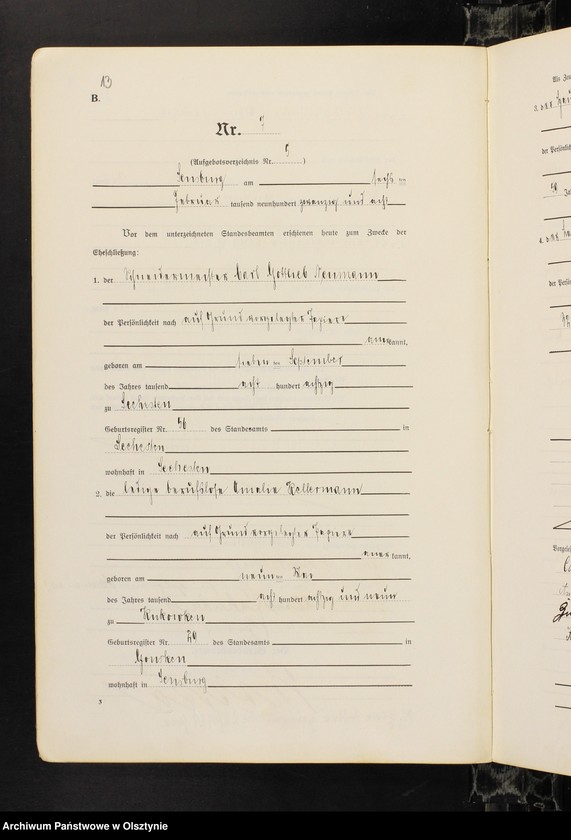 13
B.
Nr. 7
(Aufgebotsverzeichnis Nr. 5)
Sensburg am sechs ten
Februar tausend neunhundert zwanzig und acht
Vor dem unterzeichneten Standesbeamten erschienen heute zum Zwecke der
Eheschließung:
1. der Schneidermeister Carl Gottlieb Neumann
der Persönlichkeit nach auf Grund vorgelegter Papiere
anerkannt,
geboren am sieben ten September
des Jahres tausend acht hundert achtzig
zu Seehesten
Geburtsregister Nr. 56 des Standesamts in
Seehesten
wohnhaft in Seehesten
2. die ledige berufslose Amalie Kellermann
der Persönlichkeit nach auf Grund vorgelegter Papiere
anerkannt,
geboren am neun ten Mai
des Jahres tausend acht hundert achtzig und neun
zu
Geburtsregister Nr. des Standesamts in
wohnhaft in Sensburg
3
Als Zeu
3. d
der Persönlich
Jahr
4. d
der Persön
Vorgeles
Archiwum Państwowe w Olsztynie